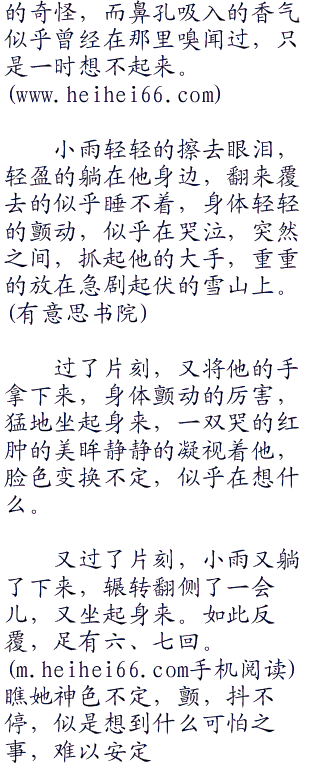 的奇怪，而鼻孔吸入的香气
似乎曾经在那里嗅闻过，只
是一时想不起来。
(www.heihei66.com)
小雨轻轻的擦去眼泪，
轻盈的躺在他身边，翻来覆
去的似乎睡不着，身体轻轻
的颤动，似乎在哭泣，突然
之间，抓起他的大手，重重
的放在急剧起伏的雪山上。
(有意思书院)
过了片刻，又将他的手
拿下来，身体颤动的厉害，
猛地坐起身来，一双哭的红
肿的美眸静静的凝视着他，
脸色变换不定，似乎在想什
么。
又过了片刻，小雨又躺
了下来，辗转翻侧了一会
儿，又坐起身来。如此反
覆，足有六、七回。
(m.heihei66.com手机阅读)
瞧她神色不定，颤，抖不
停，似是想到什么可怕之
事，难以安定